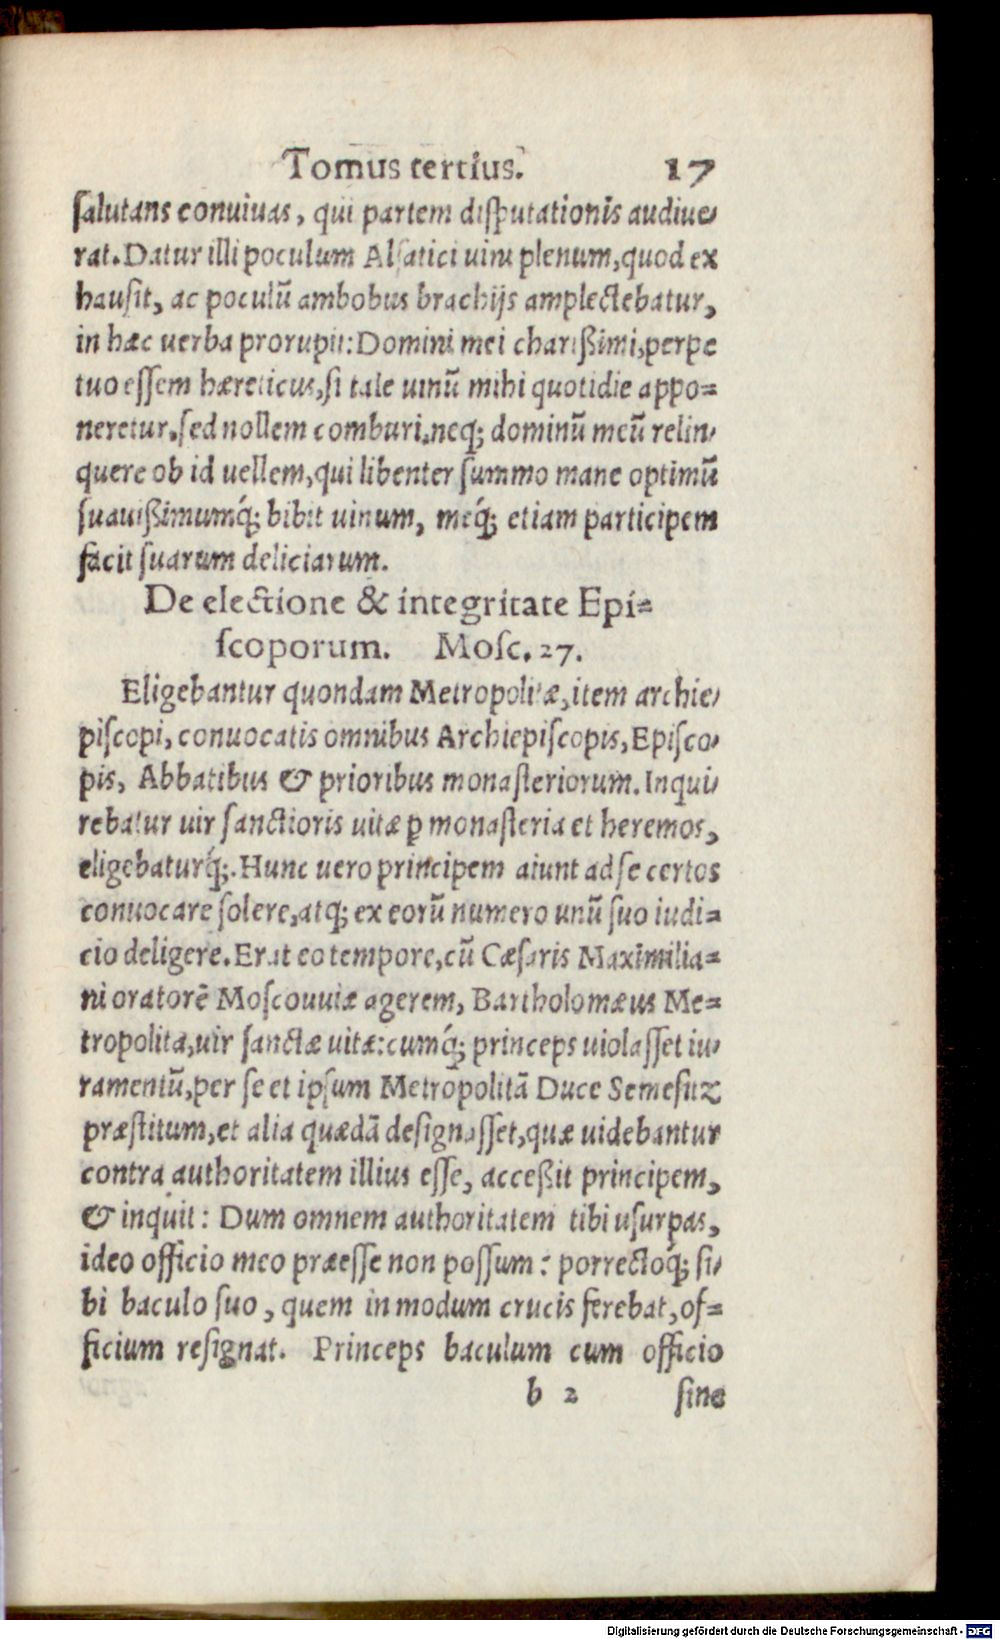 Tomus tertius. 17
ſalutans conuiuas, qui partem diſputationis audiue-
rat. Datur illi poculum Alſatici uini plenum, quod ex
hauſit, ac poculũ ambobus brachijs amplectebatur,
in hæc uerba prorupit: Domini mei charißimi, perpe
tuo eſſem hæreticus, ſi tale uinũ mihi quotidie appo-
neretur. ſed nollem comburi. neq; dominũ meũ relin-
quere ob id uellem, qui libenter ſummo mane optimũ
ſuauißimumq́; bibit uinum, meq́; etiam participem
facit ſuarum deliciarum.
De electione & integritate Epi-
ſcoporum. Moſc. 27.
Eligebantur quondam Metropolitæ, item archie-
piſcopi, conuocatis omnibus Archiepiſcopis, Epiſco-
pis, Abbatibus & prioribus monaſteriorum. Inqui-
rebatur uir ſanctioris uitæ ꝑ monaſteria et heremos,
eligebaturq́;. Hunc uero principem aiunt ad ſe certos
conuocare ſolere, atq; ex eorũ numero unũ ſuo iudi-
cio deligere. Erat eo tempore, cũ Cæſaris Maximilia-
ni oratorẽ Moſcouuiæ agerem, Bartholomæus Me-
tropolita, uir ſanctæ uitæ: cumq́; princeps uiolaſſet iu-
ramentũ, per ſe et ipſum Metropolitã Duce Semeſitz
præſtitum, et alia quædã deſignaſſet, quæ uidebantur
contra authoritatem illius eſſe, acceßit principem,
& inquit: Dum omnem authoritatem tibi uſurpas,
ideo officio meo præeſſe non poſſum: porrectoq́; ſi-
bi baculo ſuo, quem in modum crucis ferebat, of-
ficium reſignat. Princeps baculum cum officio
b 2 ſine
Digitalisierung gefördert durch die Deutsche Forschungsgemeinschaft - DFG